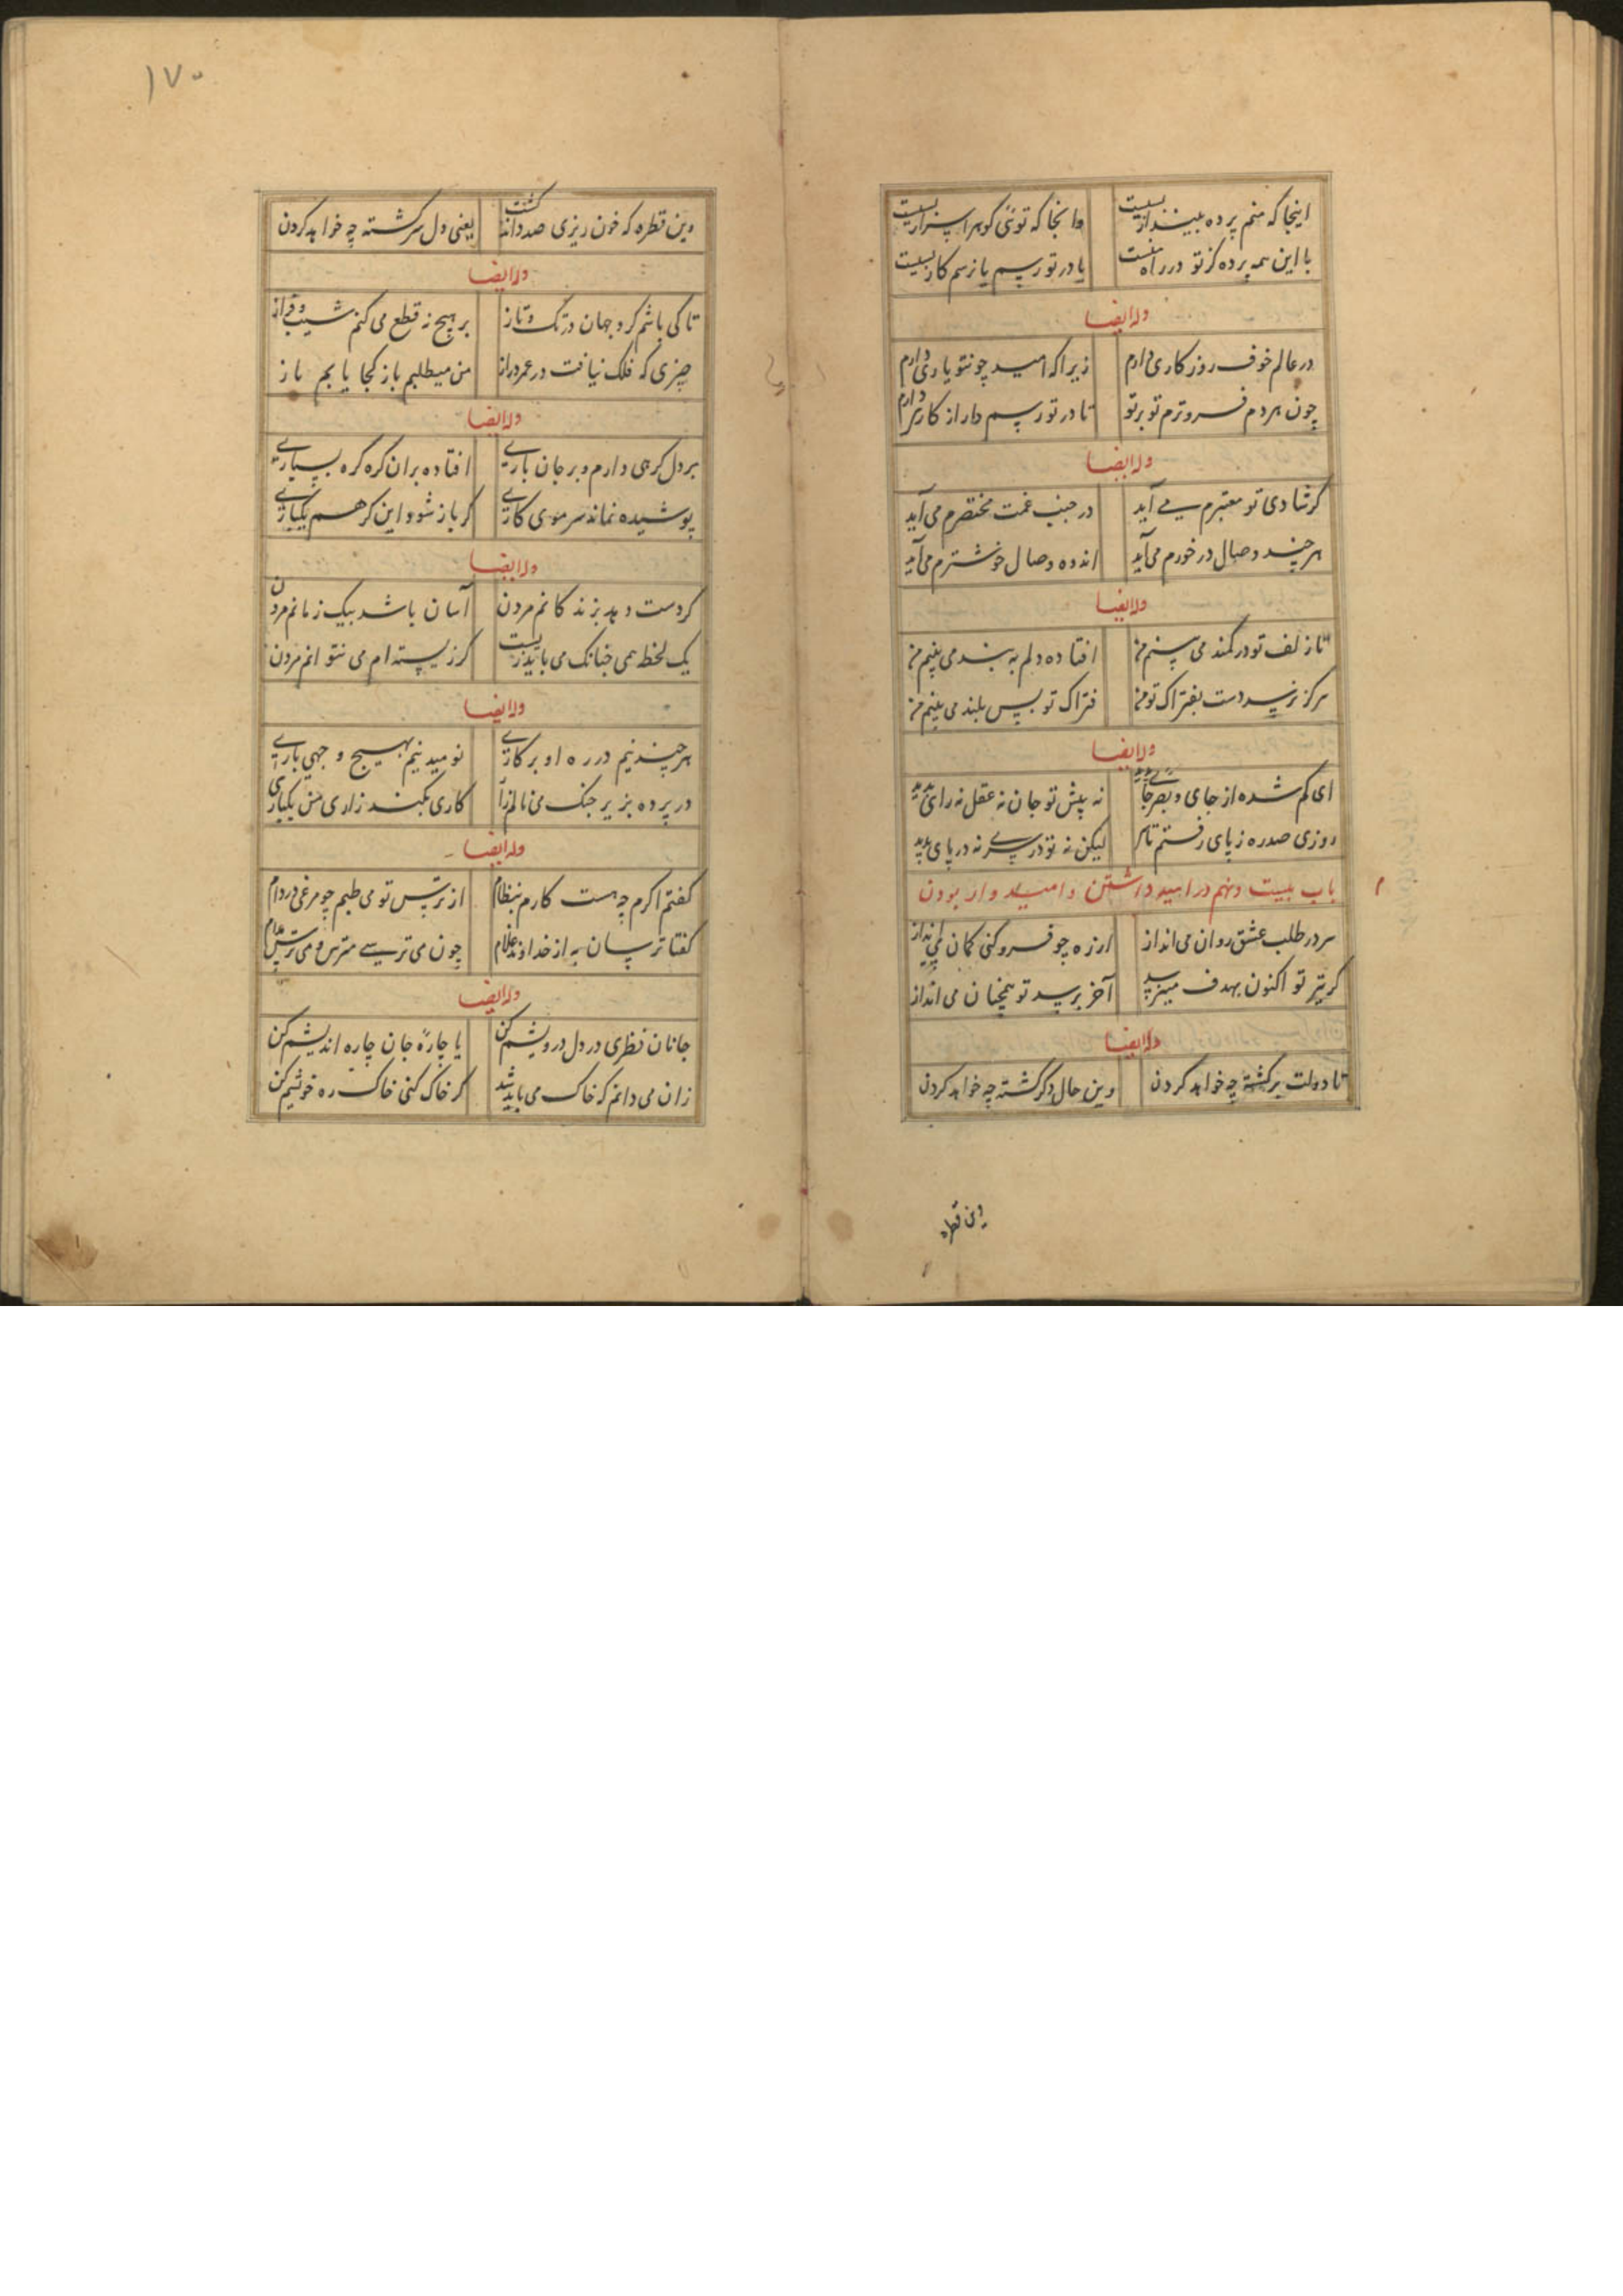 اینجا که منم پرده بیننداز بسیت وانجا که توئی کوهر اسرار بسیت
با این همه پرده کز تو در راه منست یا در تو رسم یا ز سم کار بسیت
وله ایضا
در عالم خوف روزکاری دارم زیرا که امید چو نتو یاری دارم
چون هر دم فروترم تو برتر تا در تو رسم دراز کاری دارم
وله ایضا
کر شادی تو معتبرم می آید در جنب غمت مختصرم می آید
هر چند وصال در خورم می آید اندوه وصال خوشترم می آید
وله ایضا
تا زلف تو در کمند می بینم من افتاده دلم به بند می بینم من
هرکز نرسد دست بفتراک تو من فتراک تو بس بلند می بینم من
وله ایضا
ای کم شده از جای و بصر جای پدید نه پیش تو جان نه عقل نه رای پدید
روزی صد ره ز پای رفتم تا سر لیکن نه تو در سر نه در پای پدید
باب بیست و نهم در امید داشتن و امیدوار بودن
سر در طلب عشق روان می انداز ار زه چو فرو کنی کمان می انداز
کر تیر تو اکنون بهدف می نرسد آخر برسد تو همچنان می انداز
وله ایضا
تا دولت برکشته چه خواهد کردن وین حال دکر کشته چه خواهد کردن
وین قطره
۱۷۰
وین قطره که خون ریزی صد دانه کشت یعنی دل سرکشته چه خواهد کردن
وله ایضا
تا کی باشم کرد جهان در تک و تاز بر هیچ نه قطع می کنم شیب و فراز
چیزی که فلک نیافت در عمر دراز من میطلبم باز کجا یابم باز
وله ایضا
بر دل کرهی دارم و بر جان باری افتاده بران کره کره بسیاری
پوشیده نماند سر موی کاری کر باز شود این کرهم یکباری
وله ایضا
کر دست دهد بزندکانم مردن آسان باشد بیک زمانم مردن
یک لحظه همی چنانک می باید زیست کر زیسته ام می نتوانم مردن
وله ایضا
هر چند نیم در ره او بر کاری نومید نیم بهیچ وجهی باری
در پرده بزیر چنک می نالم زار کاری بکند زاری من یکباری
وله ایضا
کفتم اکرم چه هست کارم بنظام از ترس تو می طپم چو مرغی در دام
کفتا ترسان به از خداوند غلام چون می ترسی مترس و می ترس مدام
وله ایضا
جانان نظری در دل درویشم کن یا چارهٔ جان چاره اندیشم کن
زان می دانم که خاک می باید شد کر خاک کنی خاک ره خویشم کن